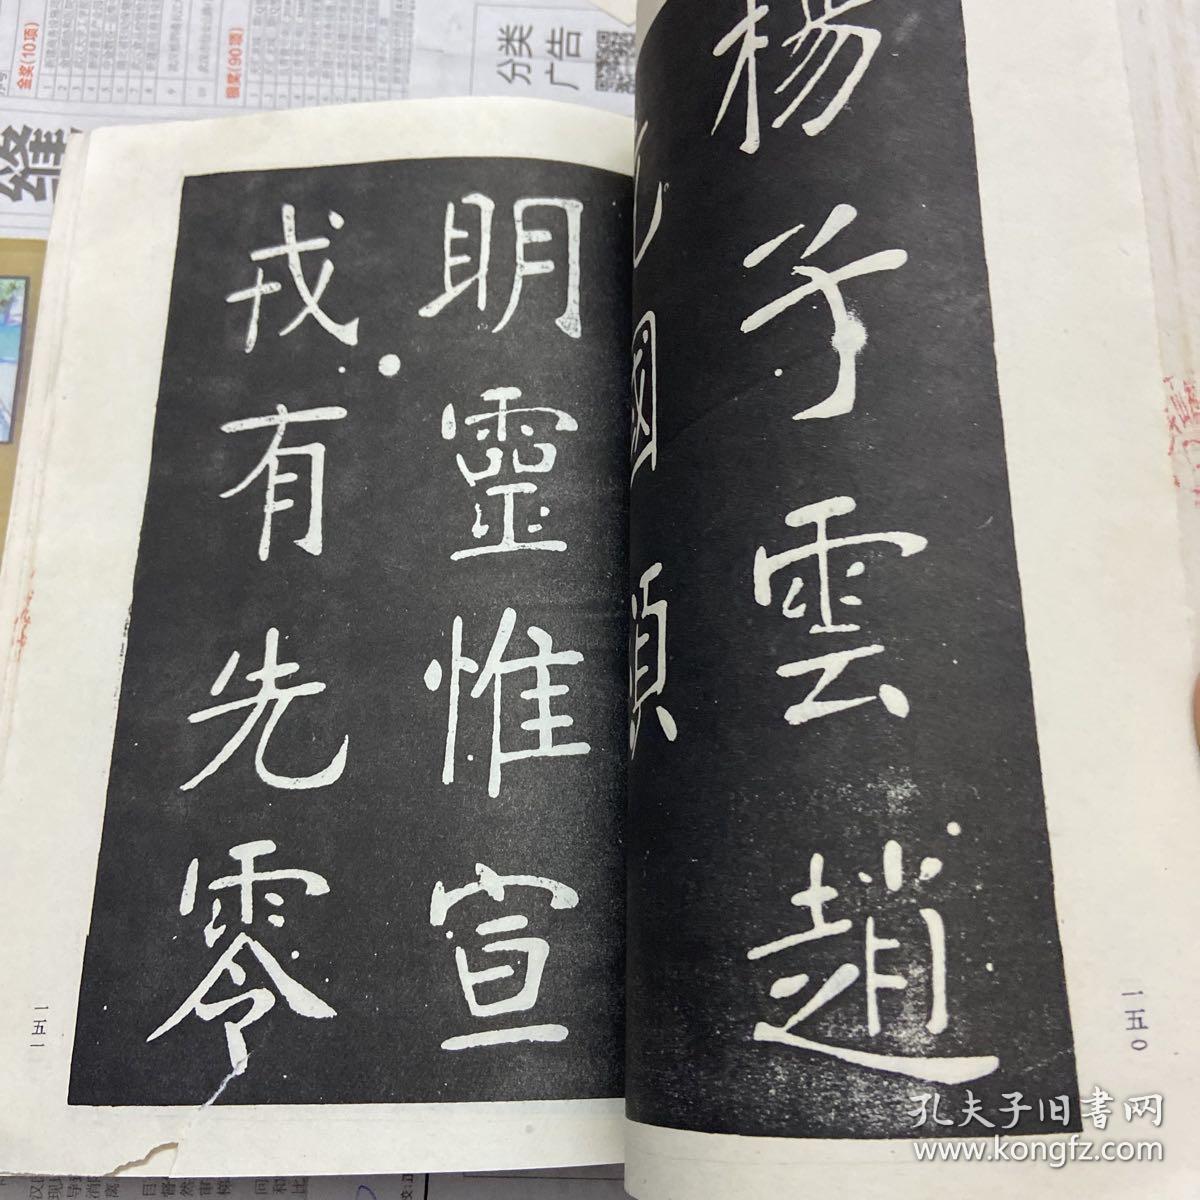 楊子雲趙
充國頌
明靈惟宣
戎有先零
一五〇
一五一
分类
广告
金奖(10项)
银奖(90项)
孔夫子旧书网
www.kongfz.com